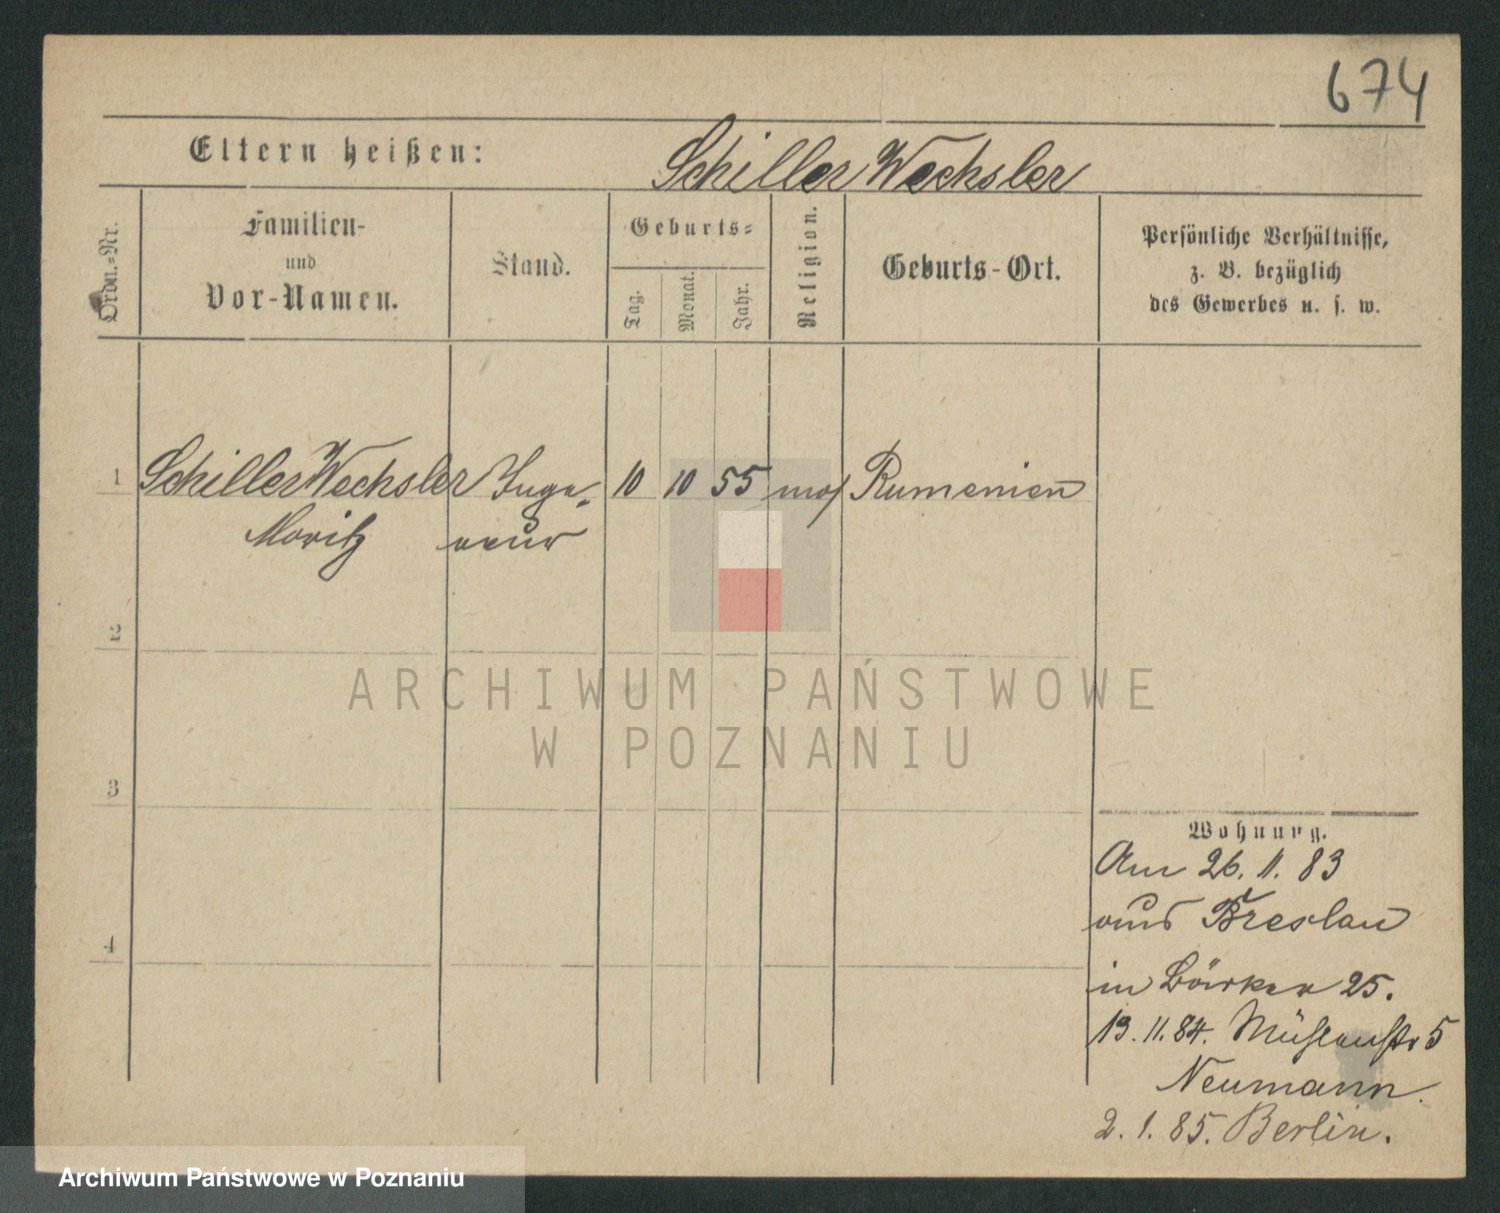 674
Eltern heißen: Schiller Wechsler
Ordn.=Nr.
Familien-
und
Vor-Namen.
Stand.
Geburts=
Tag.
Monat.
Jahr.
Religion.
Geburts-Ort.
Persönliche Verhältnisse,
z. B. bezüglich
des Gewerbes u. s. w.
1 Schiller Wechsler Inge- 10 10 55 mos Rumenien
Moritz nieur
2
ARCHIWUM PAŃSTWOWE
W POZNANIU
3
Wohnung.
Am 26. 11. 83
aus Breslau
4
in Bäcker 25.
13. 11. 84. Mühlenstr 5
Neumann.
2. 1. 85. Berlin.
Archiwum Państwowe w Poznaniu